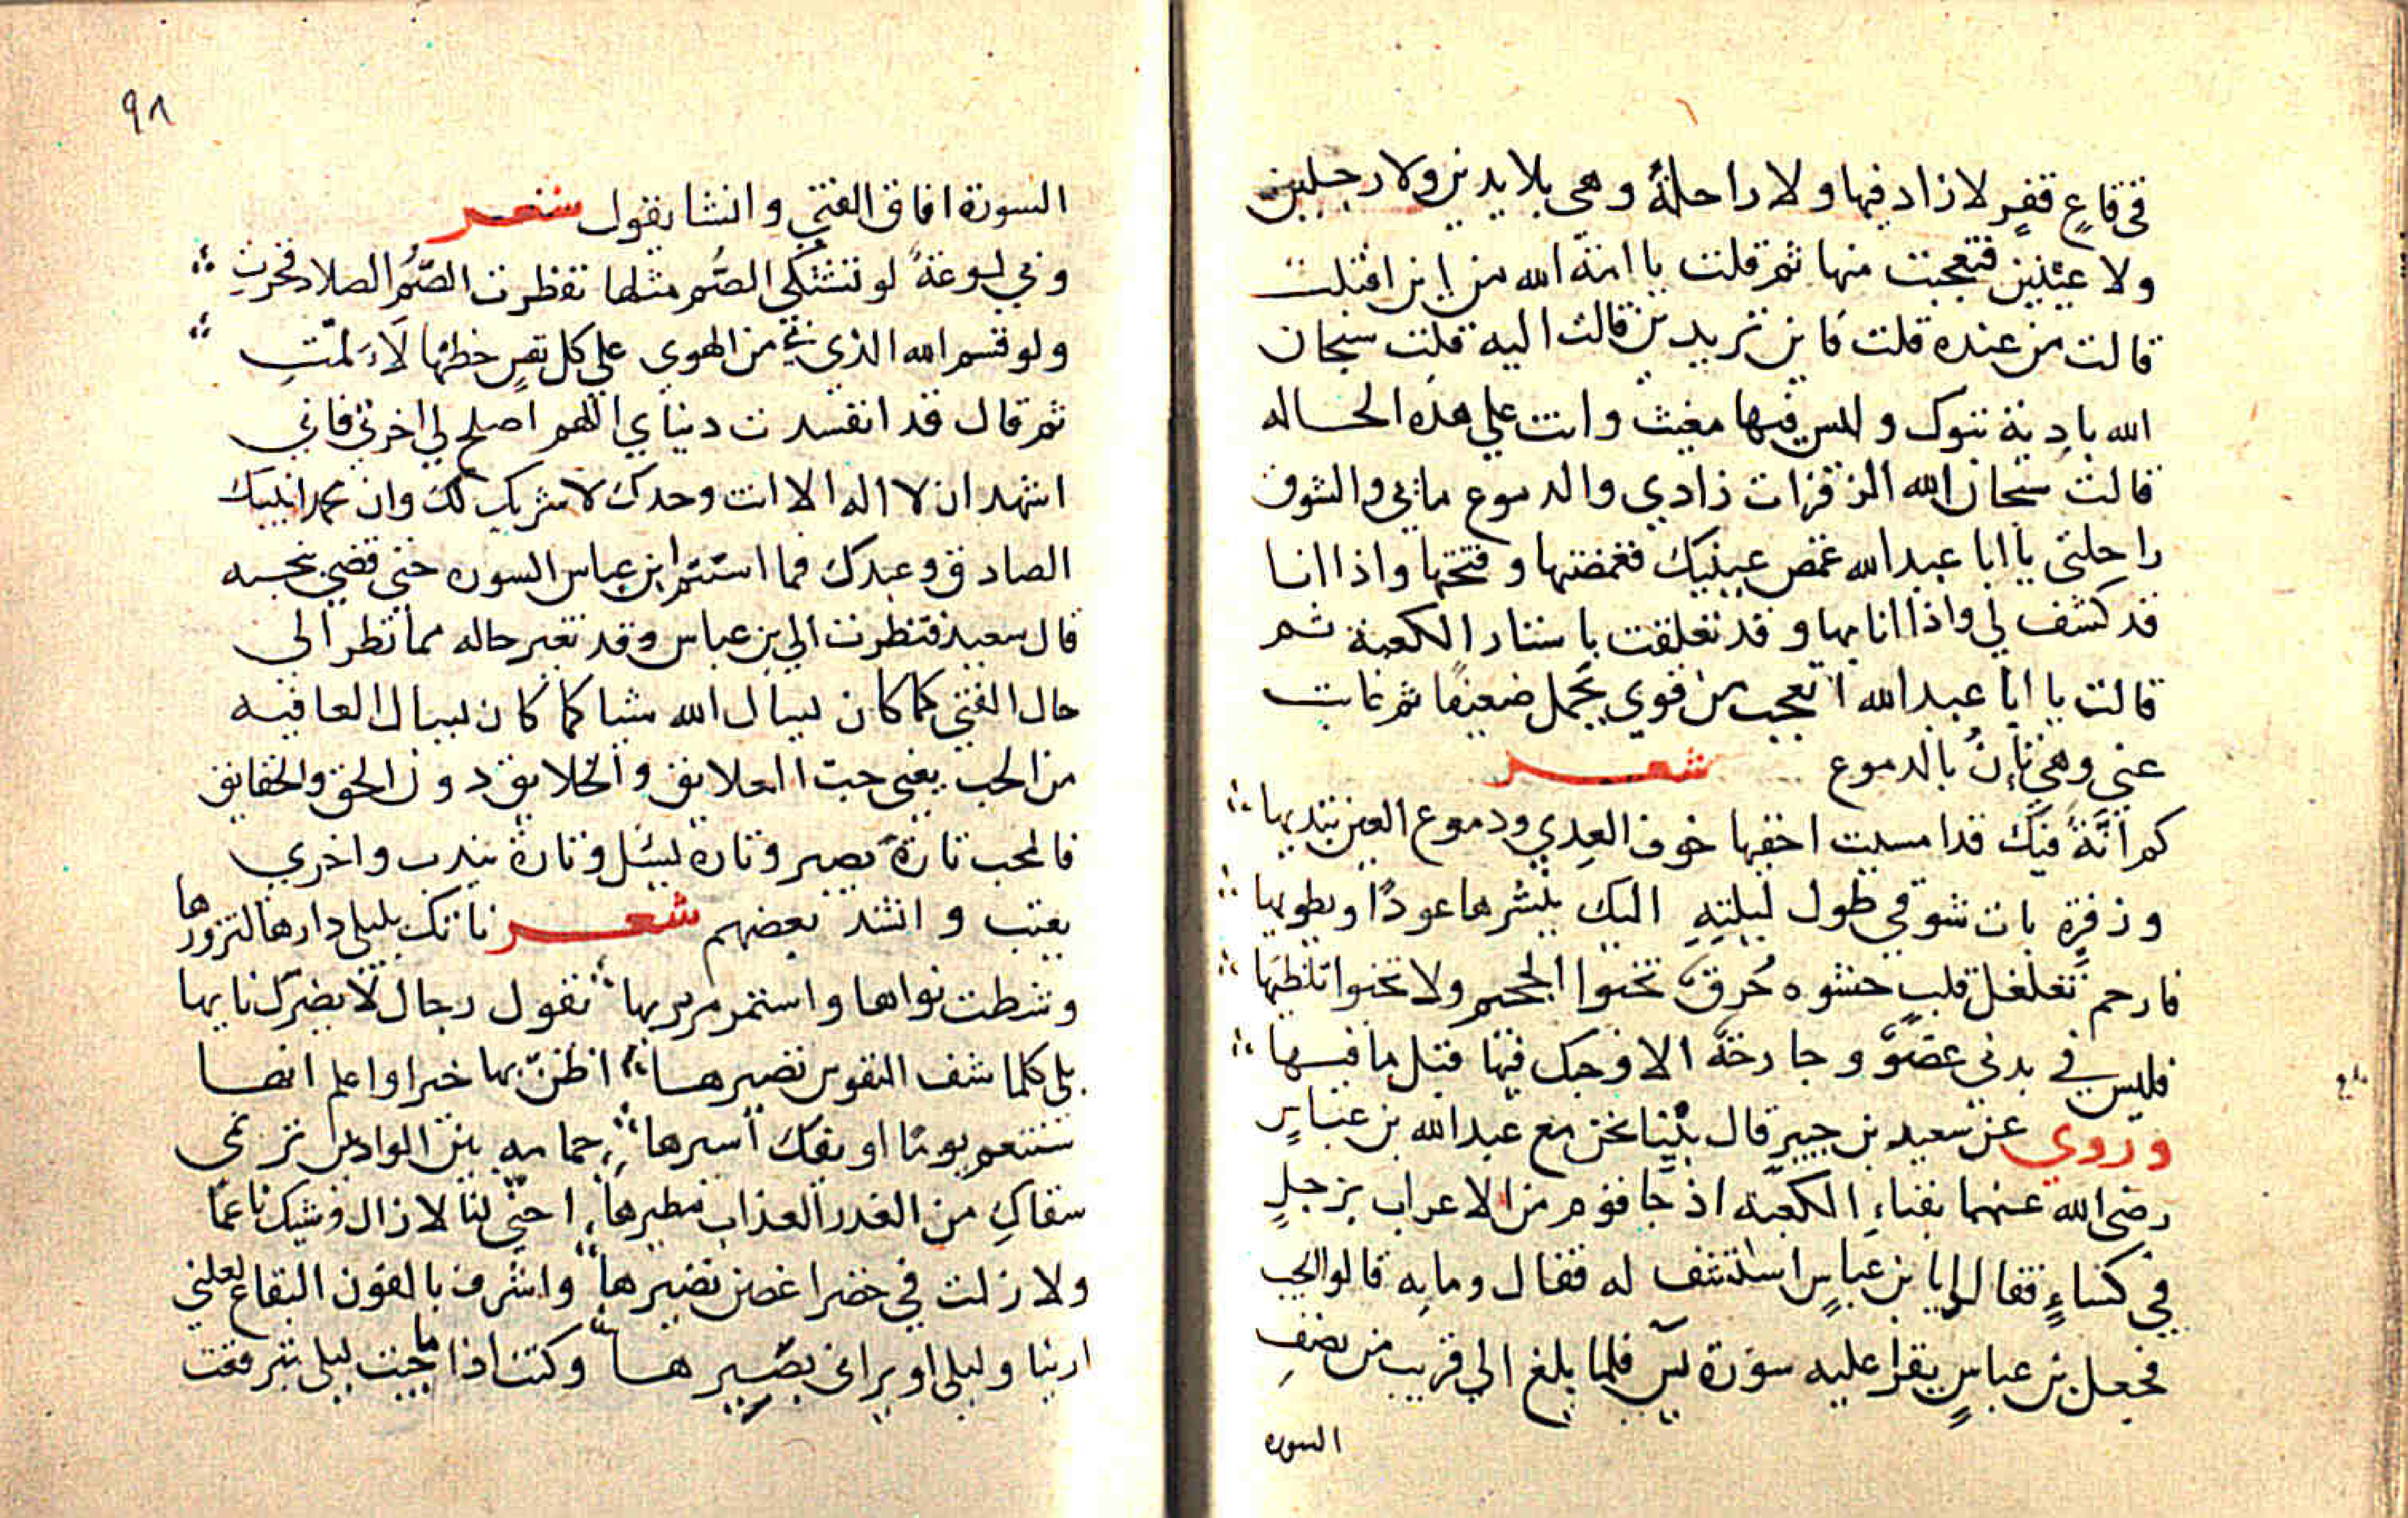 في قاعٍ قفرٍ لا زاد فيها ولا راحلةً وهي بلا يدين ولا رجلين
ولا عينين فتعجبت منها ثم قلت يا امة الله من اين اقبلت
قالت من عنده قلت فاين تريدين قالت اليه قلت سبحان
الله بادية تبوك وليس فيها مغيث وانت علي هذه الحاله
قالت سبحان الله الزفرات زادي والدموع مائي والشوق
راحلتي يا ابا عبد الله غمض عينيك فغمضتها وفتحتها واذا انا
قد كشف لي واذا انا بها وقد تعلقت باستار الكعبة ثم
قالت يا ابا عبد الله اتعجب من قوي يحمل ضعيفا ثم غابت
عني وهي تإنُ بالدموع شعر
كم انَّةً فيك قد امسيت اخفيها خوف العِدي ودموع العين تبديها
وزفرةٍ بات شوقي طول ليلتِهِ اليك ينشرها عودًا ويطويها
فارحم تغلغل قلبٍ حشوه حُرق تخبوا الجحيم ولا تخبوا تلظيها
فليس في بدني عضوٌ وجارحةً الا وحبك فيها قبل ما فيها
وروي عن سعيد بن جبير قال بينا نحن مع عبد الله بن عباسٍ
رضي الله عنهما بفناءِ الكعبة اذ جا قوم من الاعراب برجلٍ
في كساءٍ فقالوا يا بن عباسٍ استشف له فقال وما به قالوا الحب
فجعل بن عباسٍ يقرا عليه سورة يس فلما بلغ الي قريب من نصفِ
السوره
٩٨
السورة افاق الفتي وانشا يقول شعر
وبي لوعةً لو تشتكي الصُم مثلها تفطرت الصُّم الصلاد فخرتِ
ولو قسم الله الذي بي من الهوي علي كل نفسٍ حظها لاءَلمّتِ
ثم قال قد انفسدت دنياي اللهم اصلح لي اخرتي فاني
اشهد ان لا اله الا انت وحدك لا شريك لك وان محمدا نبيك
الصادق وعبدك فما استتم ابن عباس السوره حتي قضي نحبه
قال سعيد فنظرت الي بن عباس وقد تغير حاله مما نظر الي
حال الفتي كما كان يسال الله شيا كما كان يسال العافيه
من الحب يعني حبّ العلايق والخلايق دون الحق والحقايق
فالمحب تارةً يصبر وتارة يسئل وتارة يندب واخري
يعتب وانشد بعضهم شعر ناتك بليلي دارها لتزورها
وشطت نواها واستمر مريرها تقول رجال لا يضرك نايها
بلي كلما شف النفوس نضيرها اظنّ بها خيرا واعلم انها
ستنعم يومًا او يفك اسيرها حمامه بين الواديين ترنمي
سقاكِ من الغدر العذاب مطيرها احتّي لنا لا زال ريشك ناعمًا
ولا زلت في خضرا غصن نضيرها واشرف بالقون البقاع لعلني
ارنيا وليلي او يراني بصيرها وكنت اذا ما جيت ليلي تبرقعت